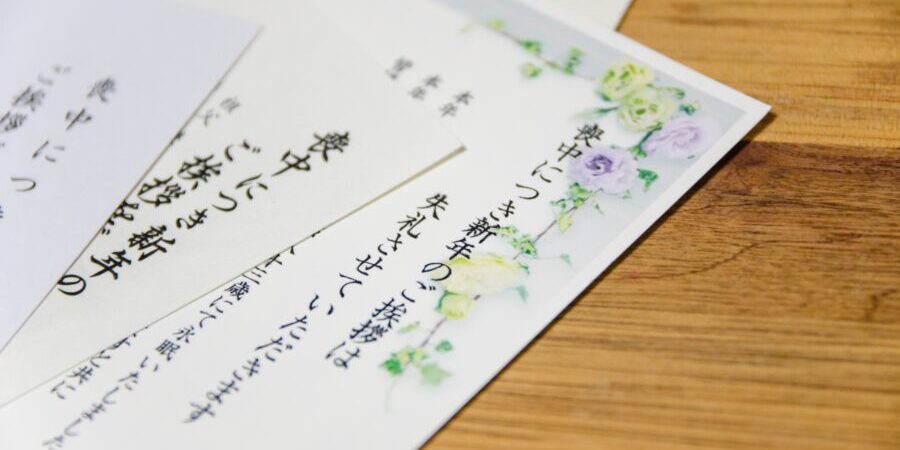 喪中につき新年のご挨拶は
失礼させていただきます
本年
本年
十三歳にて永眠いたしました
すと共に
喪中につき新年の
ご挨拶をご
祖父
喪中につ
ご挨拶